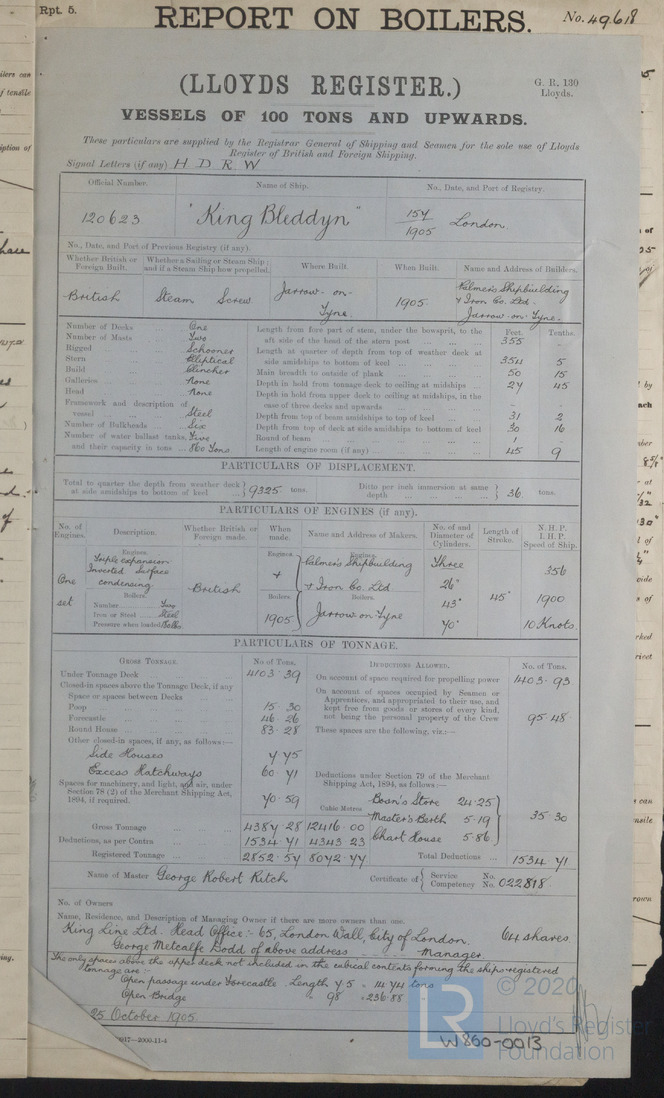 Rpt. 5.
REPORT ON BOILERS.
No. 49618
(LLOYDS REGISTER.)
G. R. 130
Lloyds.
VESSELS OF 100 TONS AND UPWARDS.
These particulars are supplied by the Registrar General of Shipping and Seamen for the sole use of Lloyds
Register of British and Foreign Shipping.
Signal Letters (if any) H. D. R. W
Official Number. Name of Ship. No., Date, and Port of Registry.
120623 "King Bleddyn" 154/1905 London.
No., Date, and Port of Previous Registry (if any).
Whether British or Foreign Built. Whether a Sailing or Steam Ship; and if a Steam Ship how propelled. Where Built. When Built. Name and Address of Builders.
British Steam Screw Jarrow-on-Tyne. 1905. Palmer's Shipbuilding & Iron Co. Ltd. Jarrow-on-Tyne.
Number of Decks One
Number of Masts Two
Rigged Schooner
Stern Elliptical
Build Clincher
Galleries None
Head None
Framework and description of
vessel Steel
Number of Bulkheads Six
Number of water ballast tanks, Five
and their capacity in tons 860 Tons
Feet. Tenths.
Length from fore part of stem, under the bowsprit, to the
aft side of the head of the stern post 355
Length at quarter of depth from top of weather deck at
side amidships to bottom of keel 354 5
Main breadth to outside of plank 50 15
Depth in hold from tonnage deck to ceiling at midships 27 45
Depth in hold from upper deck to ceiling at midships, in the
case of three decks and upwards - -
Depth from top of beam amidships to top of keel 31 2
Depth from top of deck at side amidships to bottom of keel 30 16
Round of beam 1
Length of engine room (if any) 45 9
PARTICULARS OF DISPLACEMENT.
Total to quarter the depth from weather deck at side amidships to bottom of keel } 9325 tons. Ditto per inch immersion at same depth } 36 tons.
PARTICULARS OF ENGINES (if any).
No. of Engines. Description. Whether British or Foreign made. When made. Name and Address of Makers. No. of and Diameter of Cylinders. Length of Stroke. N. H. P. I. H. P. Speed of Ship.
One set
Engines.
Triple expansion
Inverted Surface
condensing
Boilers.
Number Two
Iron or Steel Steel
Pressure when loaded
British
Engines.
Boilers
1905
Engines.
Palmer's Shipbuilding
& Iron Co. Ltd
Boilers.
Jarrow on Tyne
Three
26"
43"
70"
45"
356
1900
10 Knots
PARTICULARS OF TONNAGE.
GROSS TONNAGE. No. of Tons.
Under Tonnage Deck 4103.39
Closed-in spaces above the Tonnage Deck, if any
Space or spaces between Decks
Poop 15.30
Forecastle 46.26
Round House 83.28
Other closed-in spaces, if any, as follows:—
Side Houses 7.75
Excess Hatchways 60.71
Spaces for machinery, and light, and air, under
Section 78 (2) of the Merchant Shipping Act,
1894, if required. 70.59
Cubic Metres
Gross Tonnage 4387.28 12416.00
Deductions, as per Contra 1534.71 4343.23
Registered Tonnage 2852.57 8072.77
DEDUCTIONS ALLOWED. No. of Tons.
On account of space required for propelling power 1403.93
On account of spaces occupied by Seamen or
Apprentices, and appropriated to their use, and
kept free from goods or stores of every kind,
not being the personal property of the Crew 95.48
These spaces are the following, viz.:—
Deductions under Section 79 of the Merchant
Shipping Act, 1894, as follows:—
Bosn's Store 24.25
Master's Berth 5.19
Chart House 5.86
35.30
Total Deductions 1534.71
Name of Master George Robert Ritch Certificate of { Service No. Competency No. 022818
No. of Owners
Name, Residence, and Description of Managing Owner if there are more owners than one.
King Line Ltd. Head Office:- 65, London Wall, City of London. 64 shares.
George Metcalfe Dodd of above address Manager
The only spaces above the upper deck not included in the cubical contents forming the ships registered
tonnage are:-
Open passage under Forecastle. Length 7.5 = 14.74 tons
Open Bridge " 98 = 236.88 "
25 October 1905.
© 2020
LR
Lloyd's Register
Foundation
W860-0013